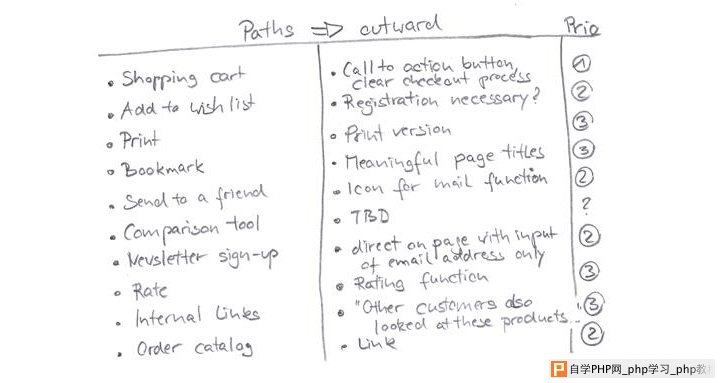 Paths ⇒ outward Prio
• Shopping cart • Call to action button, clear checkout process ①
• Add to wish list • Registration necessary? ②
• Print • Print version ③
• Bookmark • Meaningful page titles ③
• Send to a friend • Icon for mail function ②
• Comparison tool • TBD ?
• Newsletter sign-up • direct on page with input of email address only ②
• Rate • Rating function ③
• Internal Links • "Other customers also looked at these products... ③
• Order catalog • Link ②
自学PHP网_php学习_php教